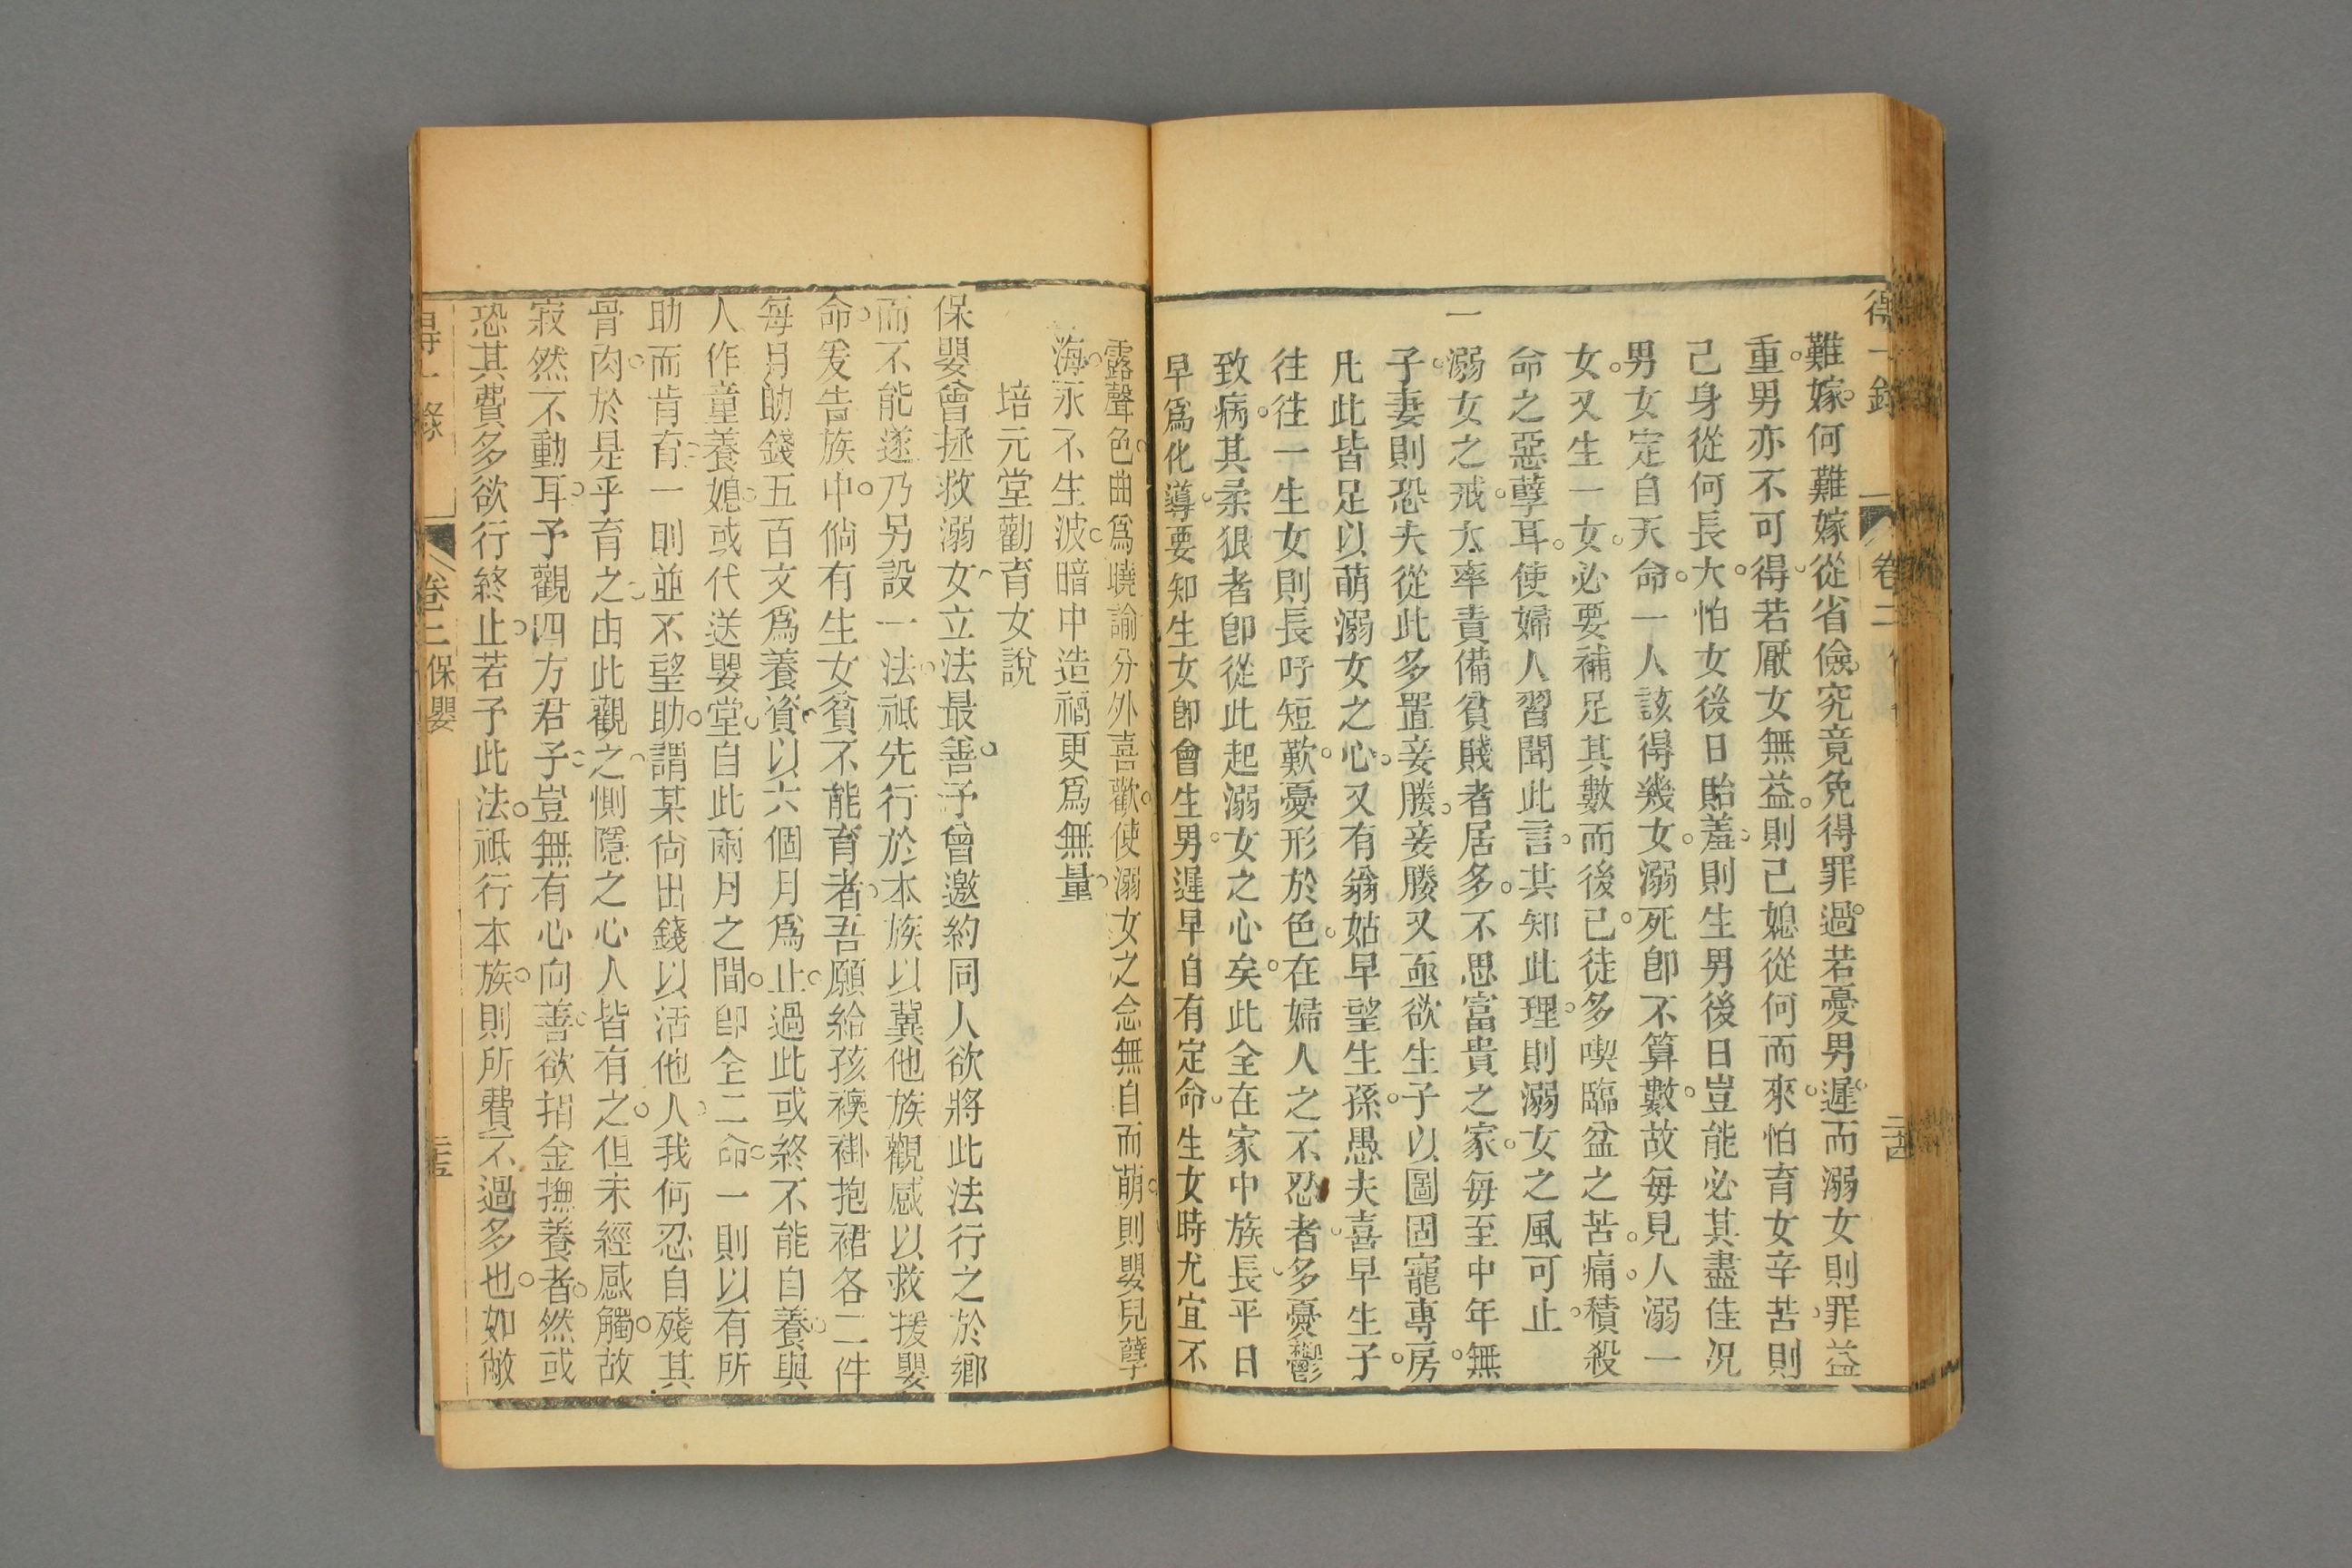 得一錄
卷二
二十四
難嫁何難嫁從省儉究竟免得罪過若憂男遲而溺女則罪益
重男亦不可得若厭女無益則己媳從何而來怕育女辛苦則
己身從何長大怕女後日貽羞則生男後日豈能必其盡佳況
男女定自天命一人該得幾女溺死卽不算數故每見人溺一
女又生一女必要補足其數而後已徒多喫臨盆之苦痛積殺
命之惡孽耳使婦人習聞此言其知此理則溺女之風可止
一溺女之戒大率責備貧賤者居多不思富貴之家每至中年無
子妻則恐夫從此多置妾媵妾媵又亟欲生子以圖固寵專房
凡此皆足以萌溺女之心又有翁姑早望生孫愚夫喜早生子
往往一生女則長吁短歎憂形於色在婦人之不忍者多憂鬱
致病其柔狠者卽從此起溺女之心矣此全在家中族長平日
早爲化導要知生女卽會生男遲早自有定命生女時尤宜不
露聲色曲爲曉諭分外喜歡使溺女之念無自而萌則嬰兒孽
海永不生波暗中造福更爲無量
培元堂勸育女說
保嬰會拯救溺女立法最善予曾邀約同人欲將此法行之於鄉
而不能遂乃另設一法祗先行於本族以冀他族觀感以救援嬰
命爰告族中倘有生女貧不能育者吾願給孩襖褂抱裙各二件
每月助錢五百文爲養資以六個月爲止過此或終不能自養與
人作童養媳或代送嬰堂自此兩月之間卽全二命一則以有所
助而肯育一則並不望助謂某尙出錢以活他人我何忍自殘其
骨肉於是乎育之由此觀之惻隱之心人皆有之但未經感觸故
寂然不動耳予觀四方君子豈無有心向善欲捐金撫養者然或
恐其費多欲行終止若予此法祗行本族則所費不過多也如敝
得一錄
卷二 保嬰
二十五